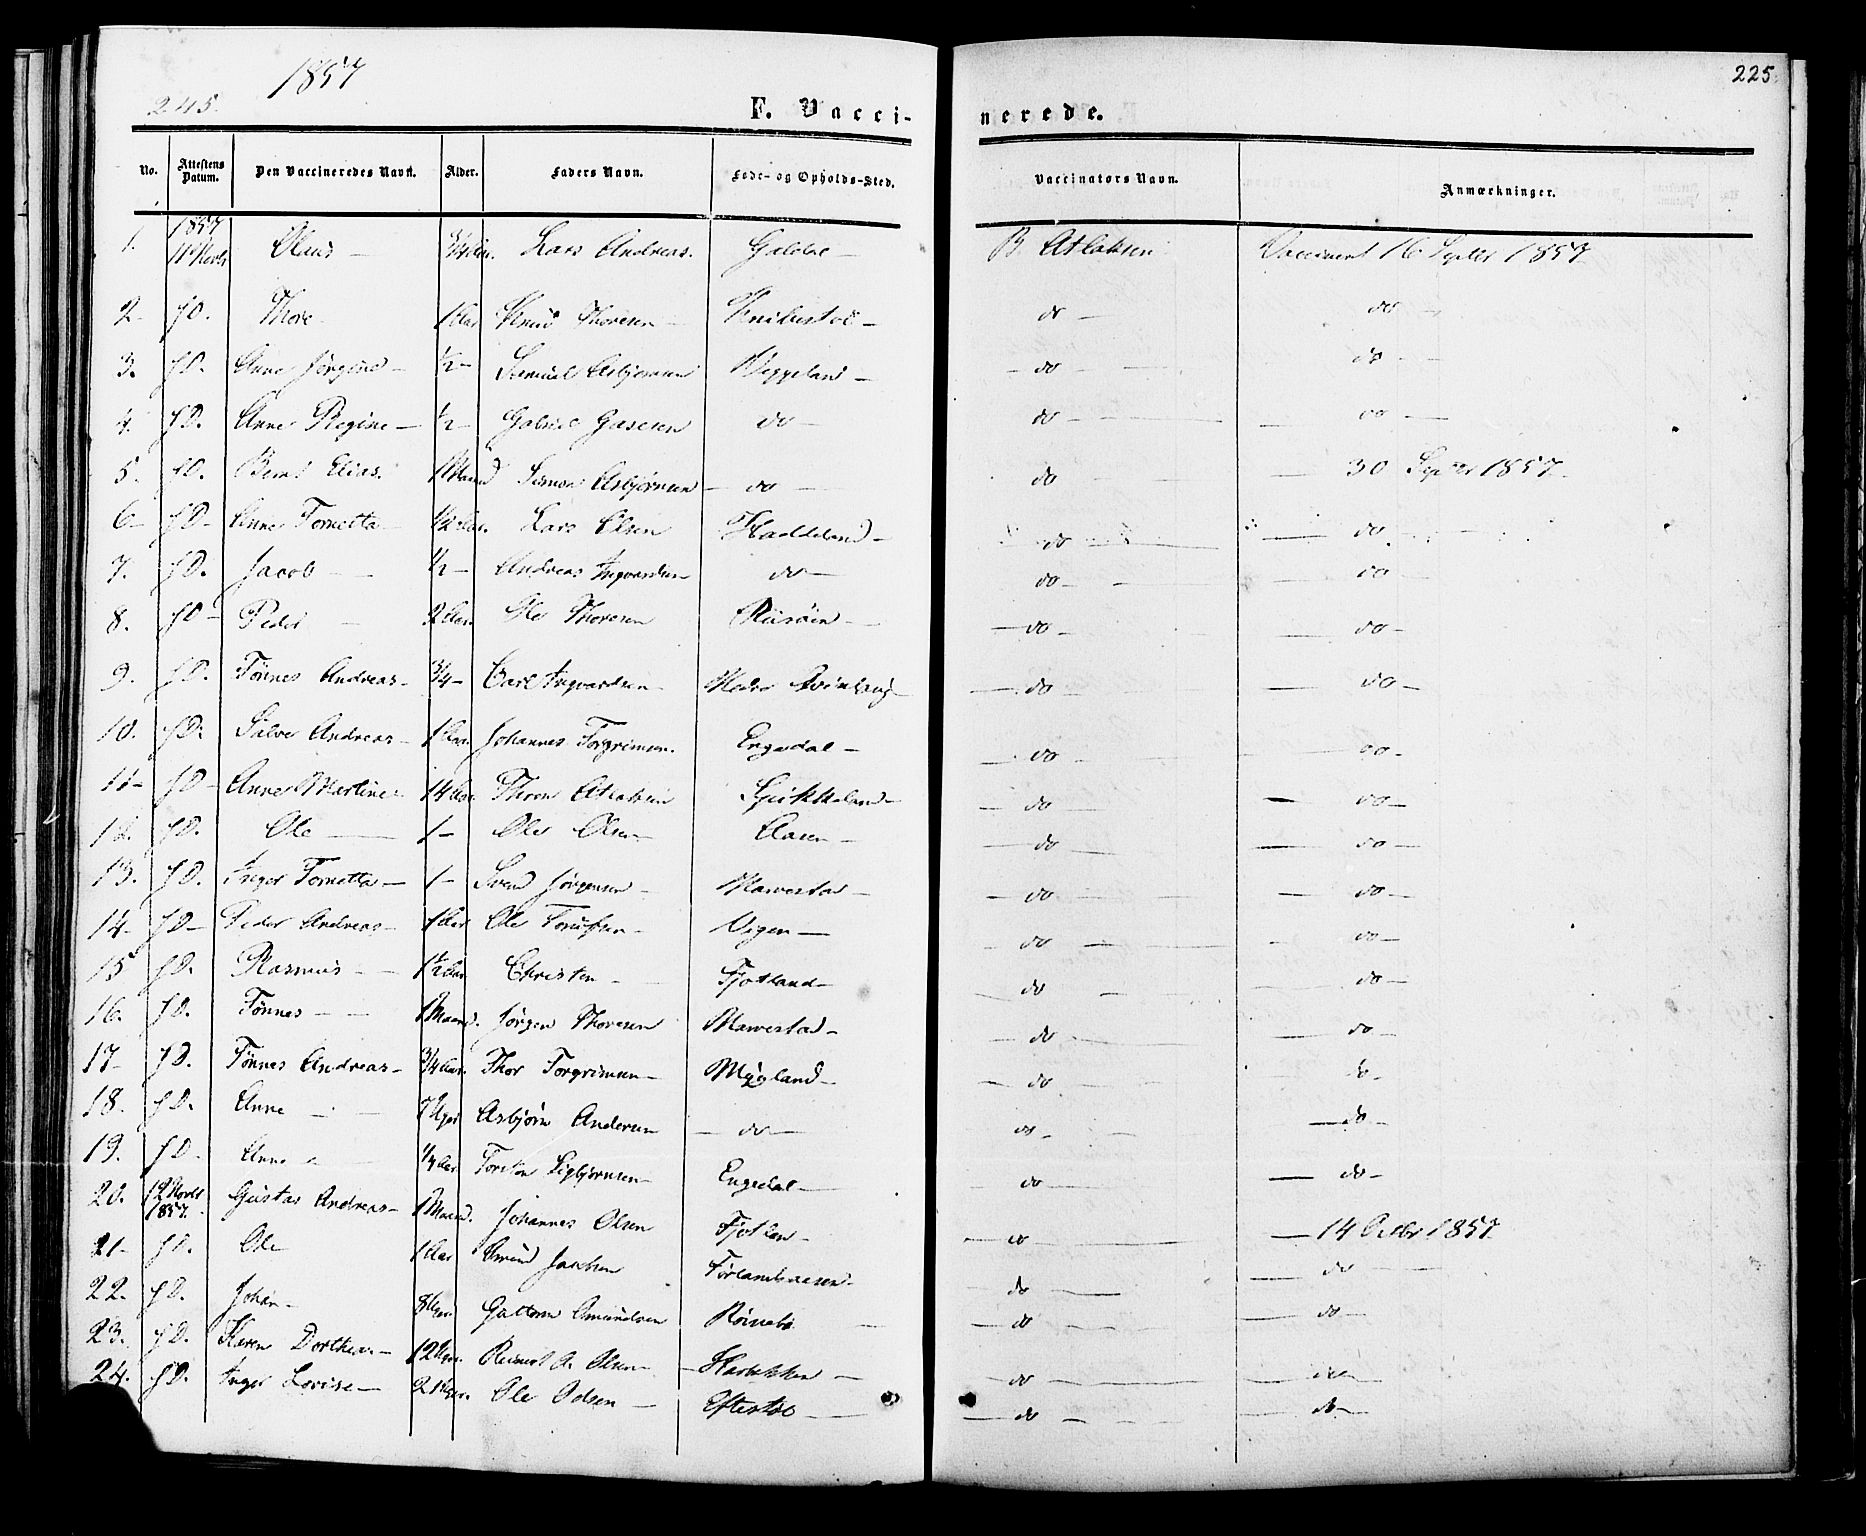 1857
245.
225
F. Vacci-
nerede.
No. Attestens Datum. Den Vaccineredes Navn. Alder. Faders Navn. Føde- og Opholds-Sted. Vaccinators Navn. Anmærkninger.
1857
1. 11 Novbr Olaus — 3/4 Aar. Lars Andreas. — B. Atlaksen Vaccineret 16 Septbr 1857
2- fD. Thore 1 Aar Knud Thoresen — Knibestøl — do — do —
3. fD. Anne Jørgine — 1/2 — Samuel Asbjørnsen Veggeland — do — do —
4. fD. Anne Regine — 1/2 Gabriel do — do — do —
5. fD. Bernt Elias. 1 Maaned Simon Asbjørnsen — do — do — 30 Septbr 1857
6- fD- Anne Tomette 1/2 Aar. Lars Olsen Haddeland — do — do —
7. fD. Jacob — 1/2 — Andreas Ingvardsen do — do — do —
8. fD — Peder — 2 Aar. Ole Thoresen — do — do —
9. fD. Tønnes Andreas — 3/4 — Carl Ingvardsen — Nedre — do — do —
10. fD. Salve Andreas — 1 Aar. Johannes Torgrimsen. Engedal — do — do —
11- fD — Anne Martine 14 Aar. Thore Atlaksen Spikkeland — do — do —
12. fD. Ole — 1 — Ole Olsen Aasen — do — do —
13. fD. Inger Tomette — 1 — Svend Jørgensen — Narvestad — do — do —
14- fD — Peder Andreas — 1 Aar Ole — Vegen — do — do —
15 fD. Rasmus — 1 1/2 Aar Christen — Fjotland — do — do —
16. fD. Tønnes — 1 Maaned. Jørgen Thoresen Narvestad — do — do —
17- fD. Tønnes Andreas — 3/4 Aar. Thor Torgrimsen — Mygland — do — do —
18. fD. Anne — 7 Uger Asbjørn Andersen — do — do — do —
19. fD. Anne — 1/4 Aar Torsten Sigbjørnsen — Engedal — do — do —
20. 12 Novbr 1857. Gustav Andreas — 1 Maaned. Johannes Olsen Fjotland — do — 14 Octbr 1857
21- fD. Ole 1 Aar Jacobsen Førlandsaasen — do — do —
22. fD. Johan — 8 Uger. Guttorm Amundsen — do — do —
23. fD. Karen Dorthea — 12 Uger. Reinert A. Olsen — do — do —
24. fD. Inger Lovise — 21 Uger. Ole Odsen — Eftestøl — do — do —